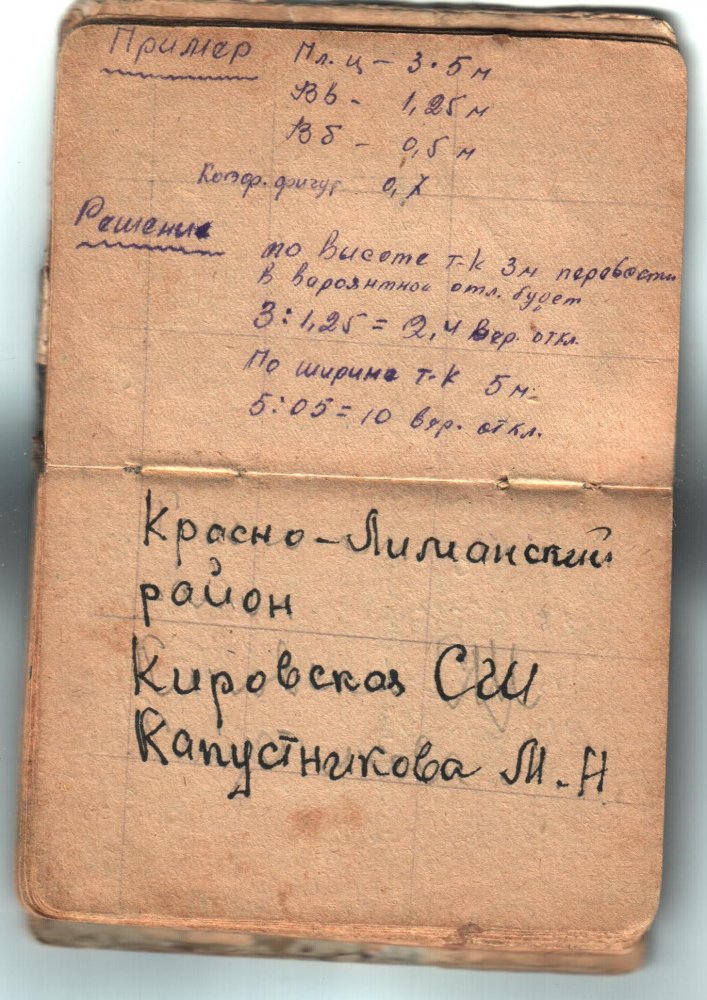 Пример Пл. ц - 3·5 м
Вв - 1,25 м
Вб - 0,5 м
Коэф. фигур 0,7
Решение
по высоте т-к 3м перевести
в вароятное отл. будет
3:1,25 = 2,4 вер. откл.
По ширине т-к 5 м.
5:05 = 10 вер. откл.
Красно-Лиманский
район
Кировская СШ
Капустникова М.Н